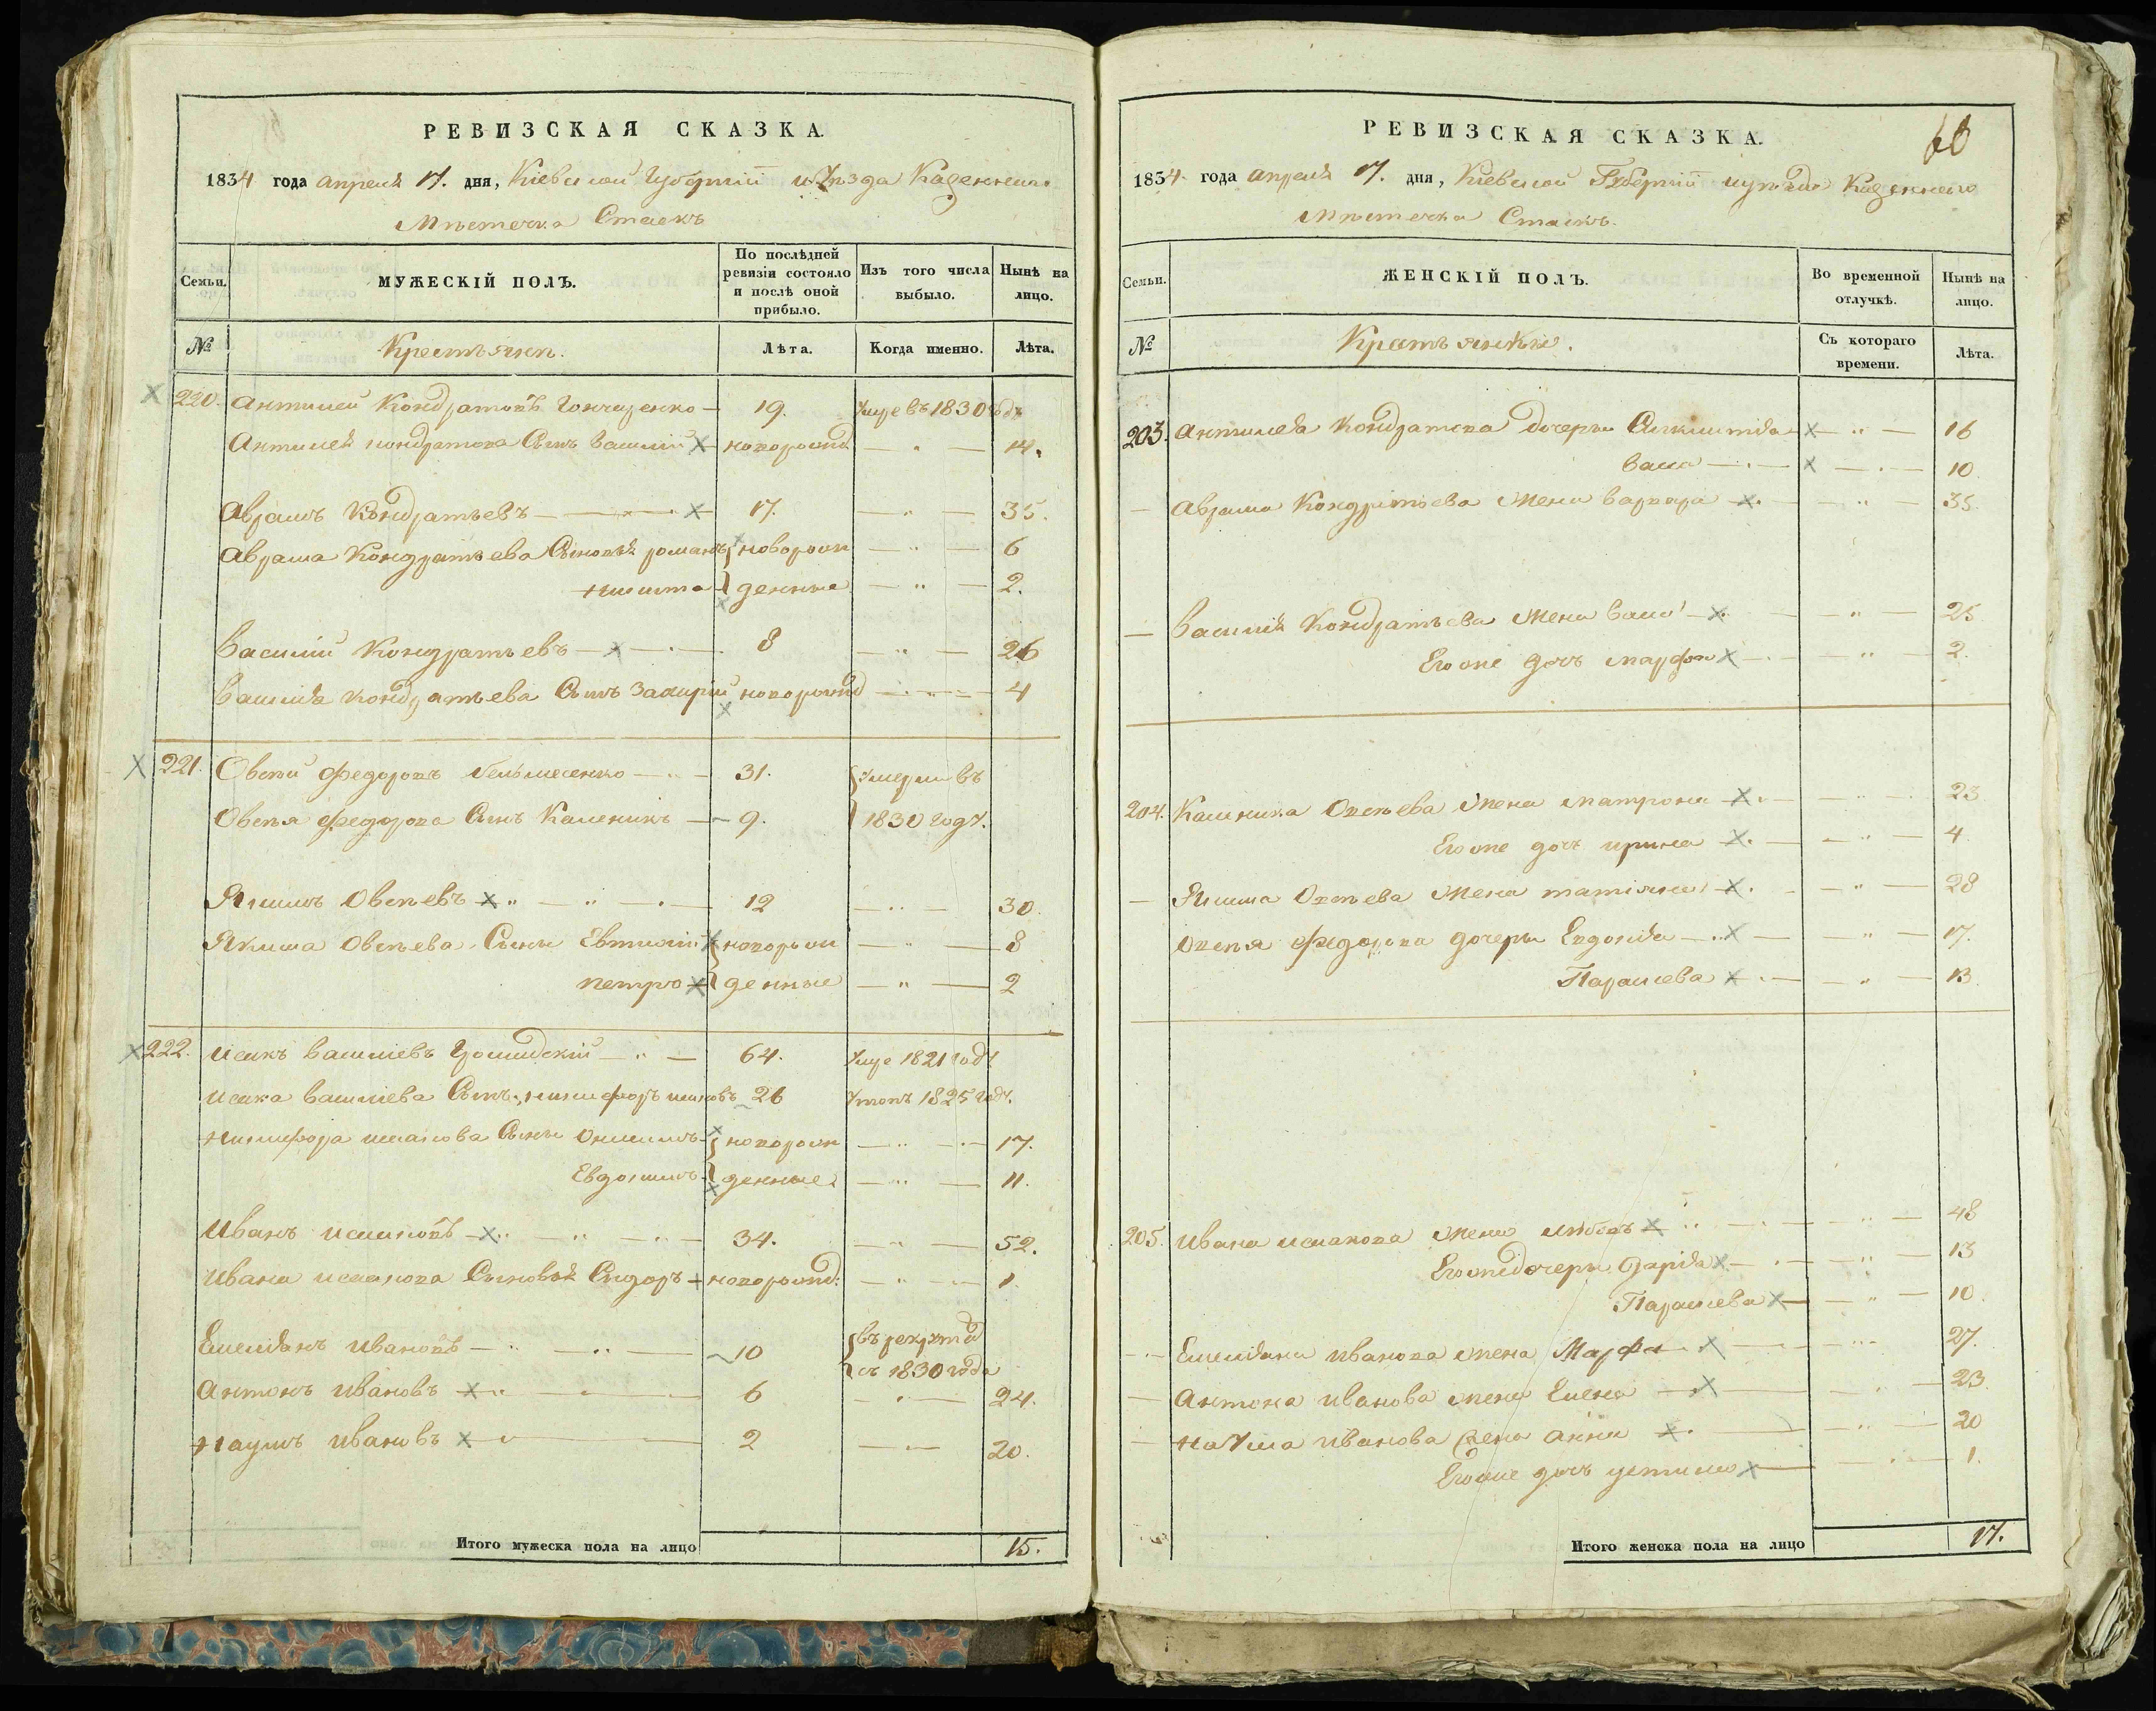 РЕВИЗСКАЯ СКАЗКА.
1834 года апреля 17. дня, Кіевской Губерніи и уѣзда Казеннаго
Мѣстечка Стаекъ
Семьи.
МУЖЕСКІЙ ПОЛЪ.
По послѣдней ревизіи состояло и послѣ оной прибыло.
Изъ того числа выбыло.
Нынѣ на лицо.
№
Крестьяне.
Лѣта.
Когда именно.
Лѣта.
220. Антипей Кондратовъ Гончаренко — 19. Умре въ 1830 годѣ
Кондратова Сынъ Василій новорожд — " — 14.
Аврамъ Кондратьевъ — 17. — " — 35.
Аврама Кондратьева Сыновья романъ новорож — " — 6
никита денные — " — 2.
Василій Кондратьевъ — 8 — " — 26
Василія Кондратьева Сынъ Захарій новорожд — " — 4
221. Овсѣй Федоровъ — 31. умерли въ
Овсѣя Федорова Сынъ Каленикъ — 9. 1830 году.
Якимъ Овсѣевъ " — " — 12 — " — 30.
Якима Овсѣева Сыны Евтихій новорож — " — 8
петро денные — " — 2
222. Исакъ Василіевъ — " — 64. Умре 1821 году
Исака Василіева Сынъ никифоръ исаковъ 26 1825 году.
Никифора исакова Сыны Онисимъ новорож — " — 17.
Евдокимъ денные — " — 11.
Иванъ исаковъ — " — 34. — " — 52.
Ивана исакова Сыновья Сидоръ новорожд: — " — 1.
Емельянъ Ивановъ — " — 10 въ рекрутах
съ 1830 года
Антонъ Ивановъ — " — 6 — " — 24.
Наумъ Ивановъ — 2 — " — 20.
Итого мужеска пола на лицо 15.
60
РЕВИЗСКАЯ СКАЗКА.
1834 года апреля 17. дня, Кіевской Губерніи и уѣзда Казеннаго
Мѣстечка Стаекъ.
Семьи.
ЖЕНСКІЙ ПОЛЪ.
Во временной отлучкѣ.
Нынѣ на лицо.
№
Съ котораго времени.
Лѣта.
203. Кондратова дочери — " — 16
— 10.
— Аврама Кондратьева жена варвара — " — 35.
— Василія Кондратьева жена — " — 25
Его же дочь марфа — " — 2.
204. Каленика Овсѣева жена матрона — " — 23
Его же дочь ирина — " — 4
— Якима Овсѣева жена татіяна — " — 28
Овсѣя Федорова дочери Евдокия — " — 17.
Параскева — " — 13.
205. Ивана исакова жена любовь " — " — 48
Его же дочери Дарія — " — 13
Параскева — " — 10.
— Емельяна Иванова жена Марфа — " — 27.
— Антона Иванова жена Елена — " — 23.
— Наума Иванова жена анна — " — 20
Его же дочь устина — " — 1.
Итого женска пола на лицо 17.